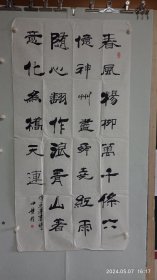 春風楊柳萬千條六
億神州盡舜堯紅雨
隨心翻作浪青山着
意化為橋天連
2024.05.07 16:17